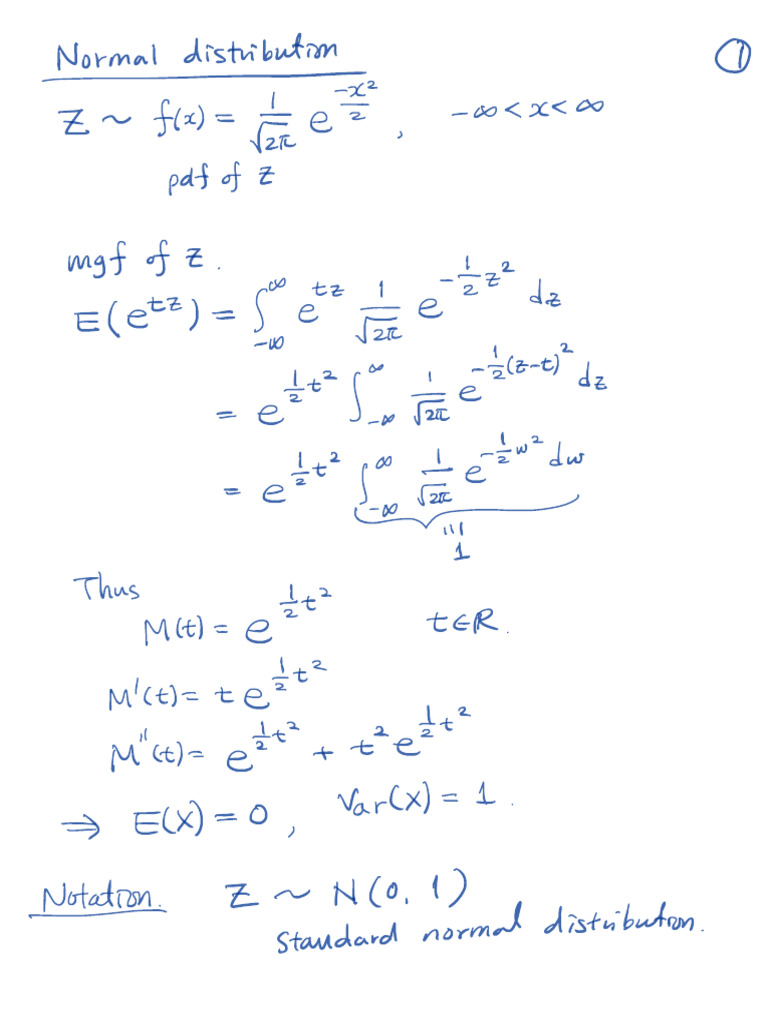 Normal distribution ①
Z ~ f(x) = 1/√2π e^(-x²/2), -∞ < x < ∞
pdf of Z
mgf of Z.
E(e^(tZ)) = ∫_{-∞}^{∞} e^(tz) 1/√2π e^(-1/2 z²) dz
= e^(1/2 t²) ∫_{-∞}^{∞} 1/√2π e^(-1/2 (z-t)²) dz
= e^(1/2 t²) ∫_{-∞}^{∞} 1/√2π e^(-1/2 w²) dw
|||
1
Thus
M(t) = e^(1/2 t²) t∈R.
M'(t) = t e^(1/2 t²)
M''(t) = e^(1/2 t²) + t² e^(1/2 t²)
⇒ E(X) = 0, Var(X) = 1.
Notation. Z ~ N(0, 1)
Standard normal distribution.